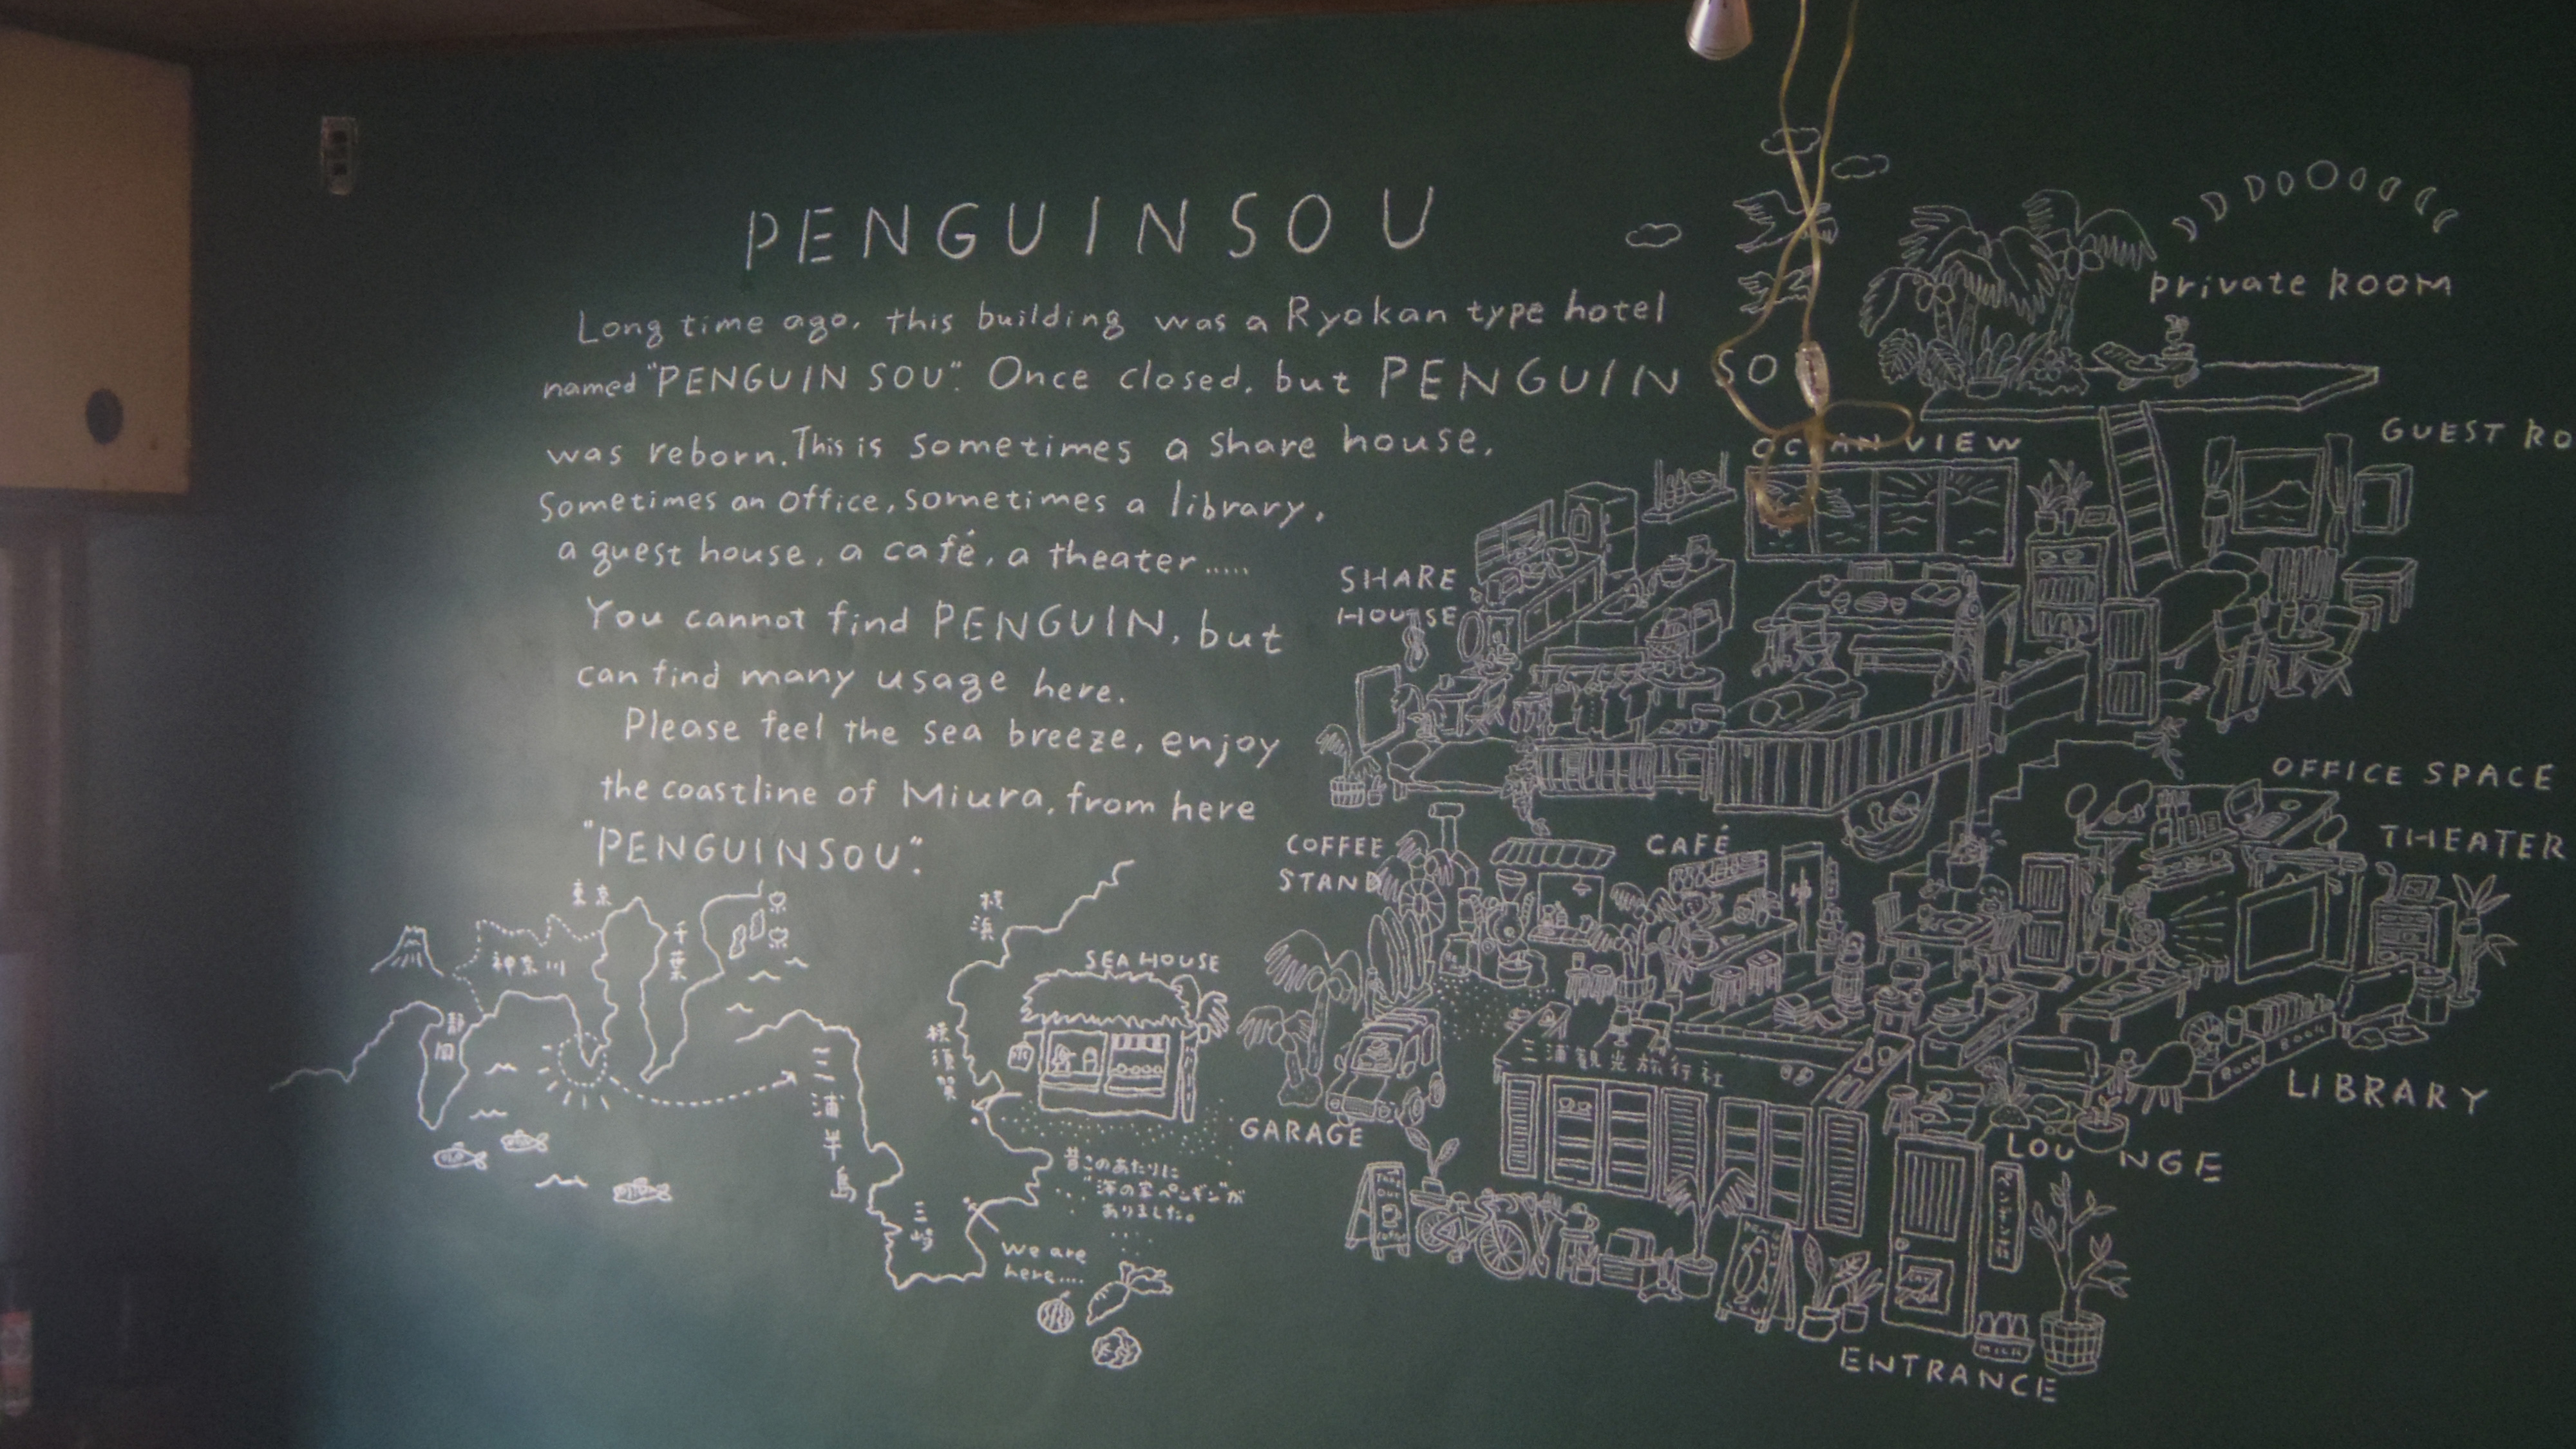 PENGUINSOU
Long time ago, this building was a Ryokan type hotel
named "PENGUIN SOU". Once closed, but PENGUIN SO
was reborn. This is sometimes a share house,
Sometimes an office, sometimes a library,
a guest house, a café, a theater.....
You cannot find PENGUIN, but
can find many usage here.
Please feel the sea breeze, enjoy
the coastline of Miura, from here
"PENGUINSOU".
東京
神奈川
千葉
静岡
横浜
横須賀
三浦半島
三崎
SEA HOUSE
氷
昔このあたりに
"海の家ペンギン"が
ありました。
We are
here....
private ROOM
GUEST RO
OCEAN VIEW
SHARE
HOUSE
OFFICE SPACE
THEATER
COFFEE
STAND
CAFÉ
ゆ
GARAGE
三浦観光旅行社
BOOK BOOK
LIBRARY
LOUNGE
TAKE
OUT
COFFEE
ペンギン荘
MILK
ENTRANCE